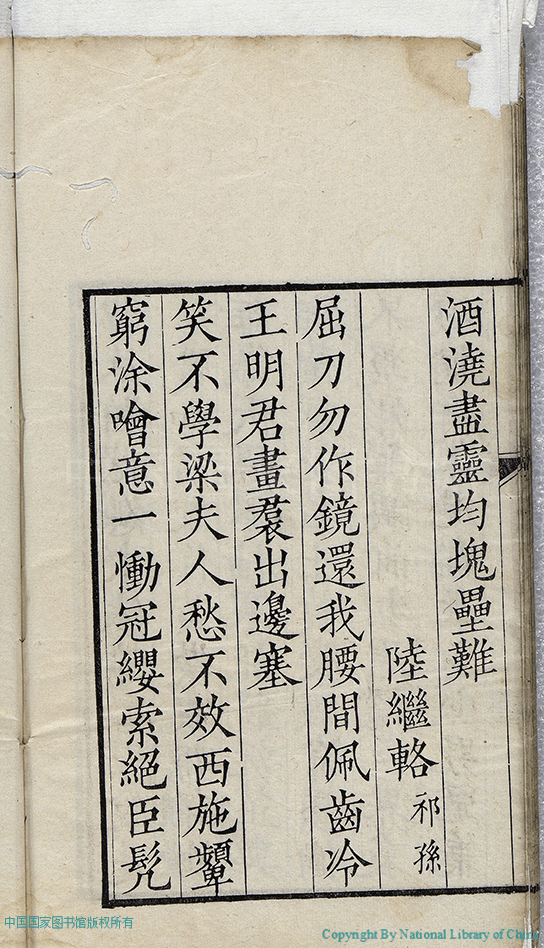 酒澆盡靈均塊壘難
陸繼輅祁孫
屈刀勿作鏡還我腰間佩齒冷
王明君畫裠出邊塞
笑不學梁夫人愁不效西施顰
窮涂噲意一慟冠纓索絕臣髡
中国国家图书馆版权所有
Copyright By National Library of China